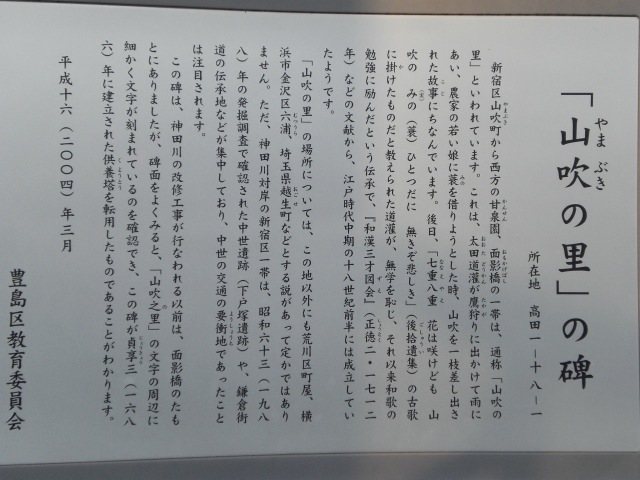 「山吹の里」の碑
やまぶき
所在地　高田一―十八―一
新宿区山吹町から西方の甘泉園、面影橋の一帯は、通称「山吹の
里」といわれています。これは、太田道灌が鷹狩りに出かけて雨に
あい、農家の若い娘に蓑を借りようとした時、山吹を一枝差し出さ
れた故事にちなんでいます。後日、「七重八重　花は咲けども　山
吹の　みの（蓑）ひとつだに　無きぞ悲しき」（後拾遺集）の古歌
に掛けたものだと教えられた道灌が、無学を恥じ、それ以来和歌の
勉強に励んだという伝承で、『和漢三才図会』（正徳二・一七一二
年）などの文献から、江戸時代中期の十八世紀前半には成立してい
たようです。
「山吹の里」の場所については、この地以外にも荒川区町屋、横
浜市金沢区六浦、埼玉県越生町などとする説があって定かではあり
ません。ただ、神田川対岸の新宿区一帯は、昭和六十三（一九八
八）年の発掘調査で確認された中世遺跡（下戸塚遺跡）や、鎌倉街
道の伝承地などが集中しており、中世の交通の要衝地であったこと
は注目されます。
この碑は、神田川の改修工事が行なわれる以前は、面影橋のたも
とにありましたが、碑面をよくみると、「山吹之里」の文字の周辺に
細かく文字が刻まれているのを確認でき、この碑が貞享三（一六八
六）年に建立された供養塔を転用したものであることがわかります。
平成十六（二〇〇四）年三月
豊島区教育委員会